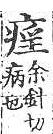 余針切
病也